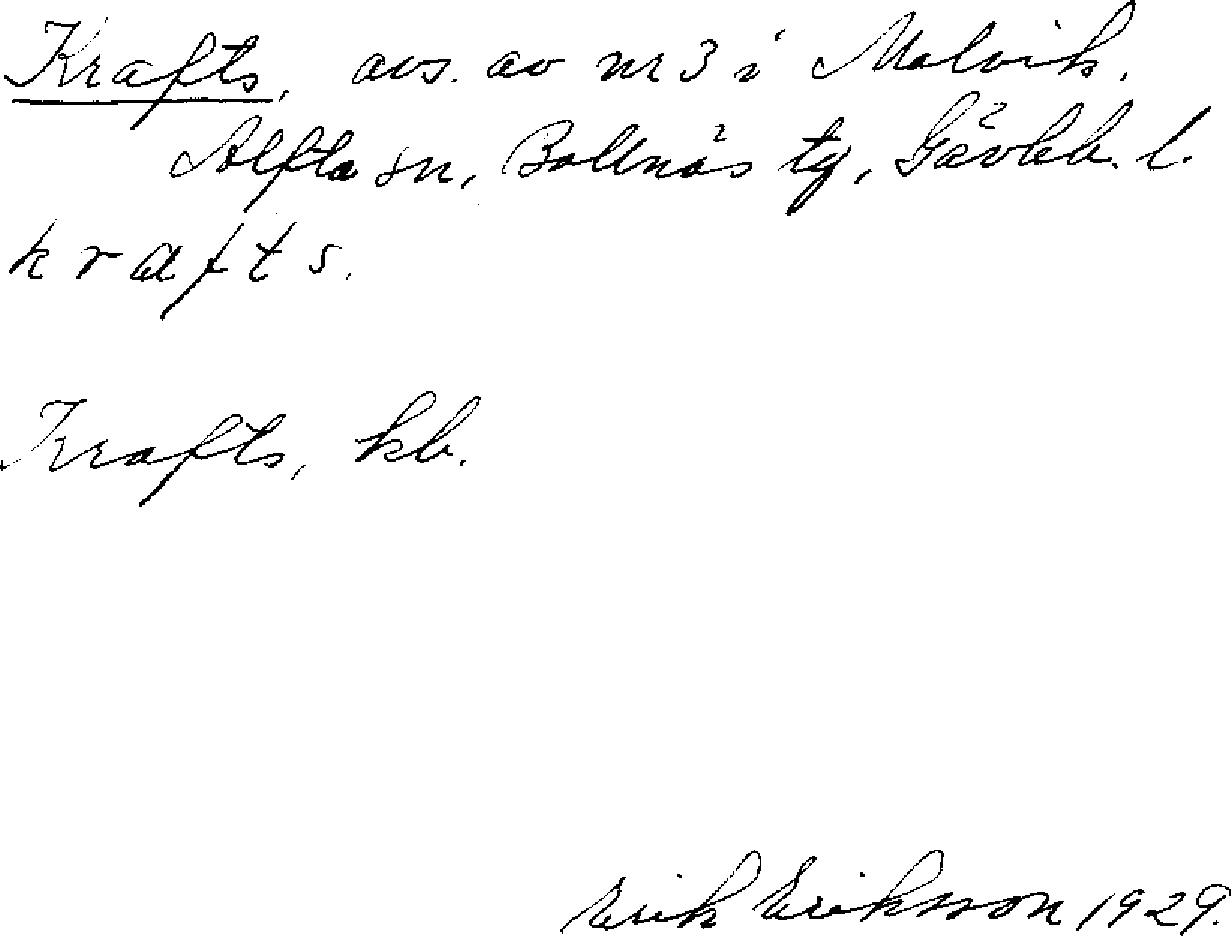 Krafts, avs. av nr 3 i Malvik.
Alfta sn, Bollnäs tg, Gävleb. l.
krafts.
Krafts, kb.
Erik Eriksson 1929.